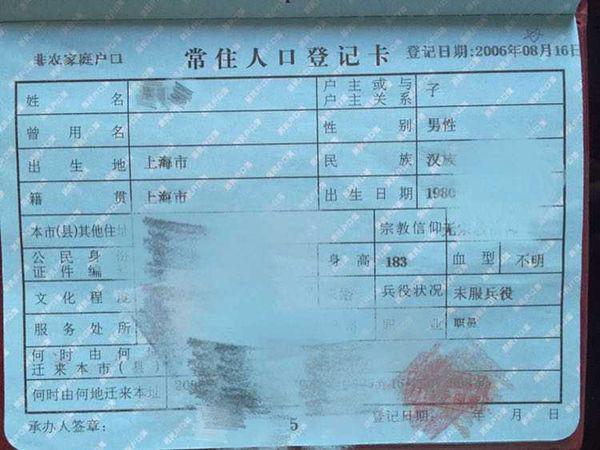 非农家庭户口 常住人口登记卡 登记日期:2006年08月16日
姓名 户主或与户主关系 子
曾用名 性别 男性
出生地 上海市 民族 汉族
籍贯 上海市 出生日期 1980
本市(县)其他住址 宗教信仰 无宗教信仰
公民身份证件编 身高 183 血型 不明
文化程度 兵役状况 未服兵役
服务处所 职业 职员
何时由何
迁来本市(县)
何时由何地迁来本址
承办人签章: 5 登记日期: 年 月 日